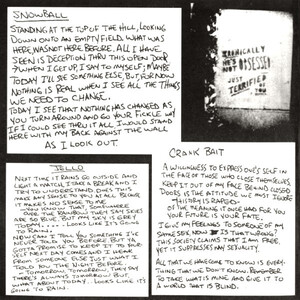 SNOWBALL
STANDING AT THE TOP OF THE HILL, LOOKING
DOWN ONTO AN EMPTY FIELD. WHAT WAS
HERE, WAS NOT HERE BEFORE. ALL I HAVE
SEEN IS DECEPTION THRU THIS OPEN DOOR
? WHEN I GET UP, I SAY TO MYSELF; MAYBE
TODAY I'LL SEE SOMETHING ELSE, BUT FOR NOW
NOTHING IS REAL WHEN I SEE ALL THE THINGS
WE NEED TO CHANGE.
TODAY I SEE THAT NOTHING HAS CHANGED AS
YOU TURN AROUND AND GO YOUR FICKLE WAY
IF I COULD SEE THRU IT ALL I WOULD STAND
HERE WITH MY BACK AGAINST THE WALL
AS I LOOK OUT.
IRONICALLY
HE'S
NOT OBSESSED
JUST
TERRIFIED
JELLO
NEXT TIME IT RAINS GO OUTSIDE AND
LIGHT A MATCH, I TAKE A BREAK AND I
TRY TO UNDERSTAND DOES THIS
MAKE ANY SENSE TO YOU AT ALL BECAUSE
IT MAKES NO SENSE TO ME
YOU KNOW THAT, SOMEWHERE
OVER THE RAINBOW THEY SAY SKIES
ARE SO BLUE. BUT MY SKY IS GREY
TODAY..... LOOKS LIKE IT'S GOING
TO RAIN.
YOU CAN'T TELL YOU SOMETHING I'VE
NEVER TOLD YOU BEFORE. BUT YA
GOTTA PROMISE TO KEEP IT TO YOUR-
SELF. NEXT DAY COMES AND I HEAR
FROM SOMEONE ELSE JUST WHAT I
TOLD YOU THE NIGHT BEFORE
TOMORROW, TOMORROW, THEY SAY
THERE'S ALWAYS TOMORROW BUT,
WHAT ABOUT TODAY.. LOOKS LIKE IT'S
GOING TO RAIN.
CRANK BAIT
A WILLINGNESS TO EXPRESS ONE'S SELF IN
THE FACE OF THOSE WHO CLOSE THEMSELVES.
KEEP IT OUT OF MY FACE BEHIND CLOSED
DOORS IS THE ATTITUDE WE MUST IGNORE
THIS HISTORY IS RAPED
OF THE MEANING IT ONCE HAD FOR YOU
YOUR FUTURE IS YOUR FATE.
I GIVE MY FEELINGS TO SOMEONE OF MY
SAME SEX NOW IS THAT WRONG?
THIS SOCIETY CLAIMS THAT I AM FREE.
YET IT SUPPRESSES MY SEXUALITY.
ALL THAT WE HAVE COME TO KNOW IS EVERY-
THING THAT WE DON'T KNOW. REMEMBER
TO TAKE WHAT IS MINE AND GIVE IT TO
A WORLD THAT IS BLIND.